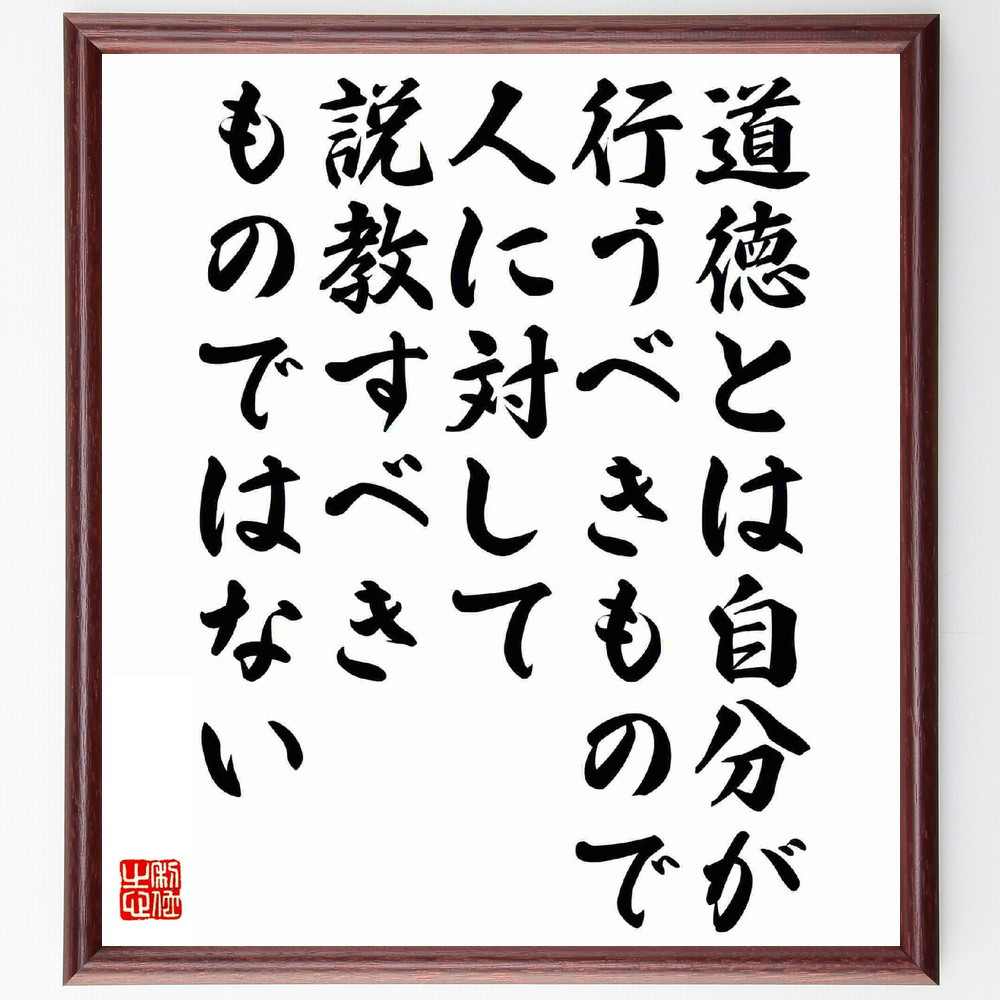 道徳とは自分が
行うべきもので
人に対して
説教すべき
ものではない